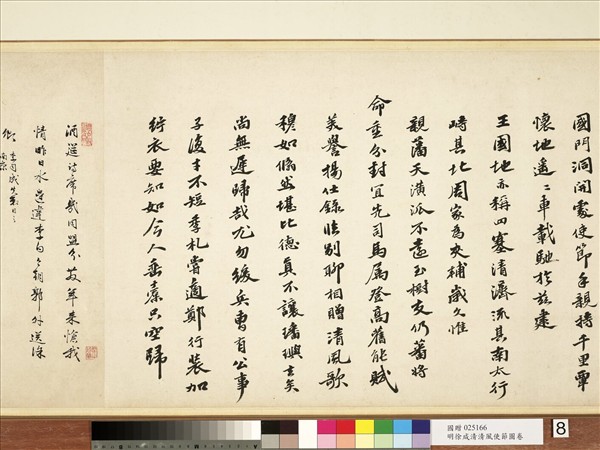 國門洞開處使節手親持千里覃
懷地遙遙車載馳於茲建
王國地亦稱四塞清濟流其南太行
峙其北周家為夾輔歲久惟
親藩天潢派不遠玉樹友仍蕃將
命重分封宜先司馬屬登高舊能賦
美譽揚仕錄臨別聊相贈清風歌
穆如脩然堪比德真不讓璠璵去矣
尚無遲歸哉尤勿緩兵曹有公事
子復才不短季札嘗適鄭行裝加
紵衣要知如今人垂橐只空歸
酒筵詩席幾同盟分
年來憶我
情昨日水邊逢李白今朝郊外送徐
卿
國贈 025166
明徐咸清清風使節圖卷
8